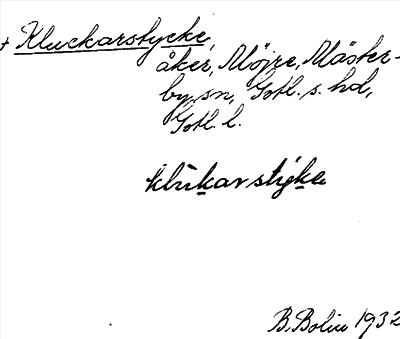 + Kluckarstycke,
åker, Möjre, Mäster-
by sn, Gotl. s. hd,
Gotl. l.
klukar styke
B. Bolin 1932